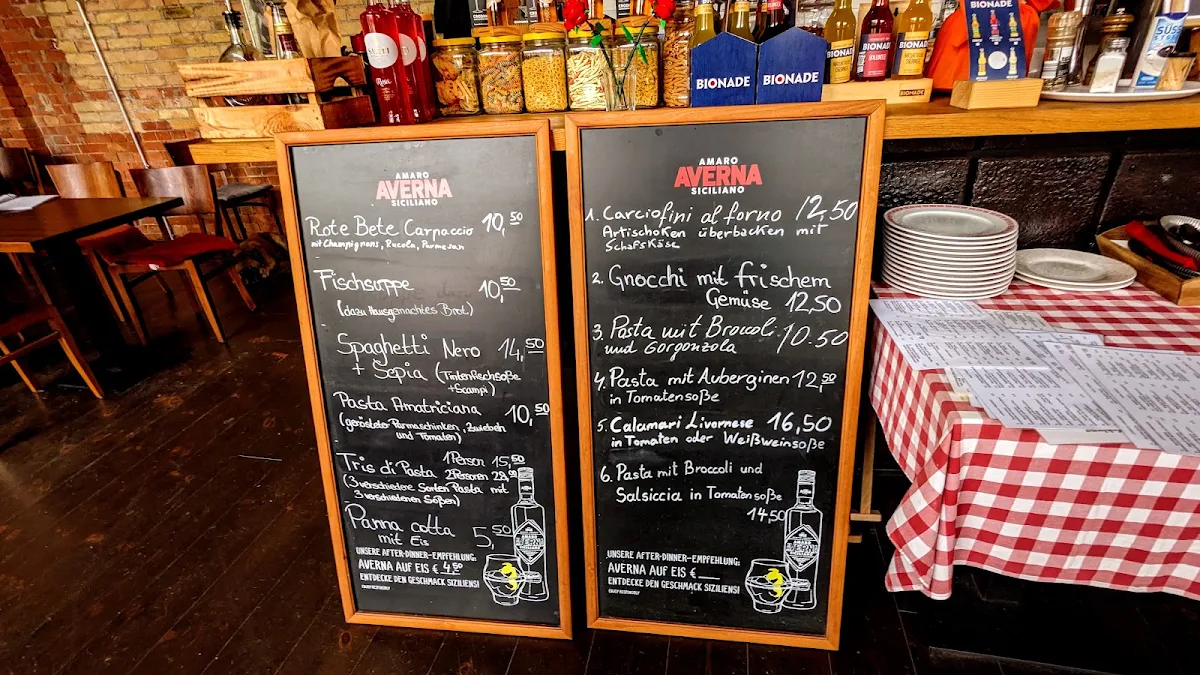 BIONADE
BIONADE
BIONADE
BIONADE
BIONADE
BIONADE
BIONADE
AMARO
AVERNA
SICILIANO
Rote Bete Carpaccio 10,50
mit Champignons, Rucola, Parmesan
Fischsuppe 10,50
(dazu Hausgemachtes Brot)
Spaghetti Nero 14,50
+ Sepia (Tintenfischsoße
+Scampi)
Pasta Amatriciana 10,50
(gerösteter Parmaschinken, Zwiebeln
und Tomaten)
Tris di Pasta 1Person 15,50
2Personen
(3 verschiedene Sorten Pasta mit
3 verschiedenen Soßen)
Panna cotta 5,50
mit Eis
UNSERE AFTER-DINNER-EMPFEHLUNG:
AVERNA AUF EIS € 4,50
ENTDECKE DEN GESCHMACK SIZILIENS!
ENJOY RESPONSIBLY
AMARO
AVERNA
SICILIANO
1. Carciofini al forno 12,50
Artischoken überbacken mit
Schafskäse
2. Gnocchi mit frischem
Gemüse 12,50
3. Pasta mit Broccoli 10.50
und Gorgonzola
4. Pasta mit Auberginen 12,50
in Tomatensoße
5. Calamari Livornese 16,50
in Tomaten oder Weißweinsoße
6. Pasta mit Broccoli und
Salsiccia in Tomatensoße
14,50
UNSERE AFTER-DINNER-EMPFEHLUNG:
AVERNA AUF EIS €
ENTDECKE DEN GESCHMACK SIZILIENS!
ENJOY RESPONSIBLY